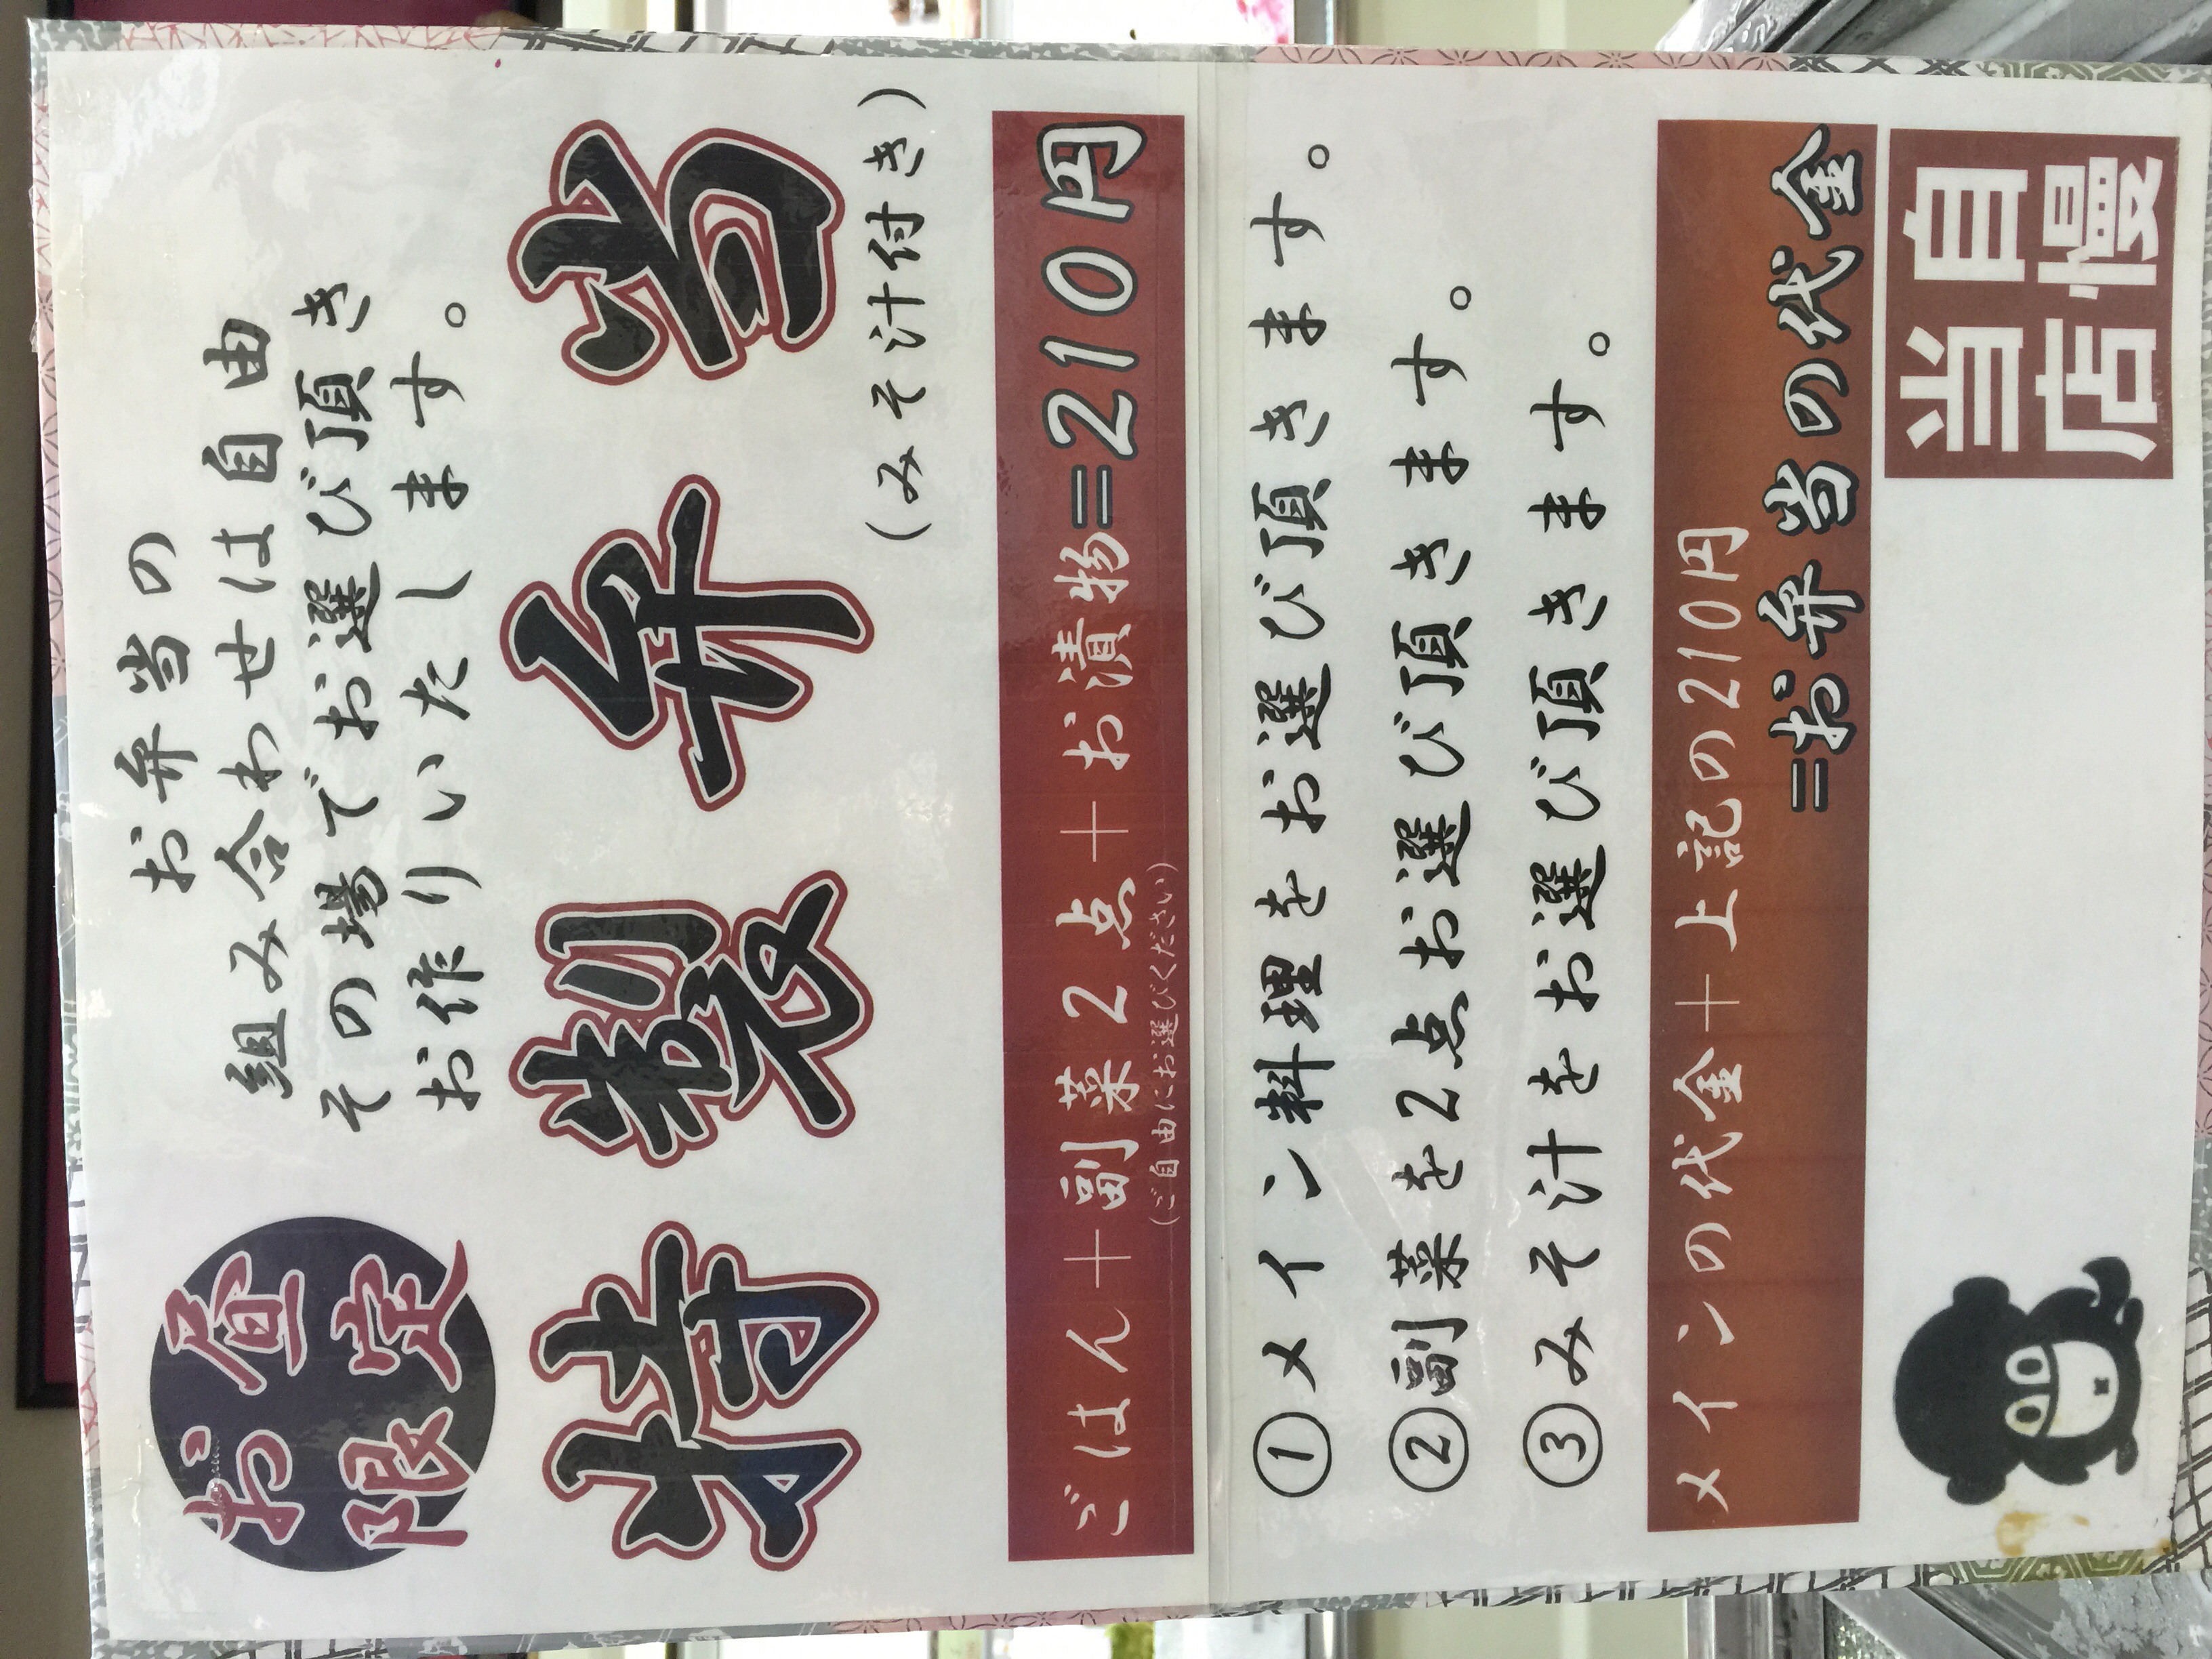 お昼
限定
お弁当の
組み合わせは自由
その場でお選び頂き
お作りいたします。
特製弁当
（みそ汁付き）
ごはん＋副菜2点＋お漬物=210円
（ご自由にお選びください）
①メイン料理をお選び頂きます。
②副菜を2点お選び頂きます。
③みそ汁をお選び頂きます。
メインの代金＋上記の210円
=お弁当の代金
当店
自慢